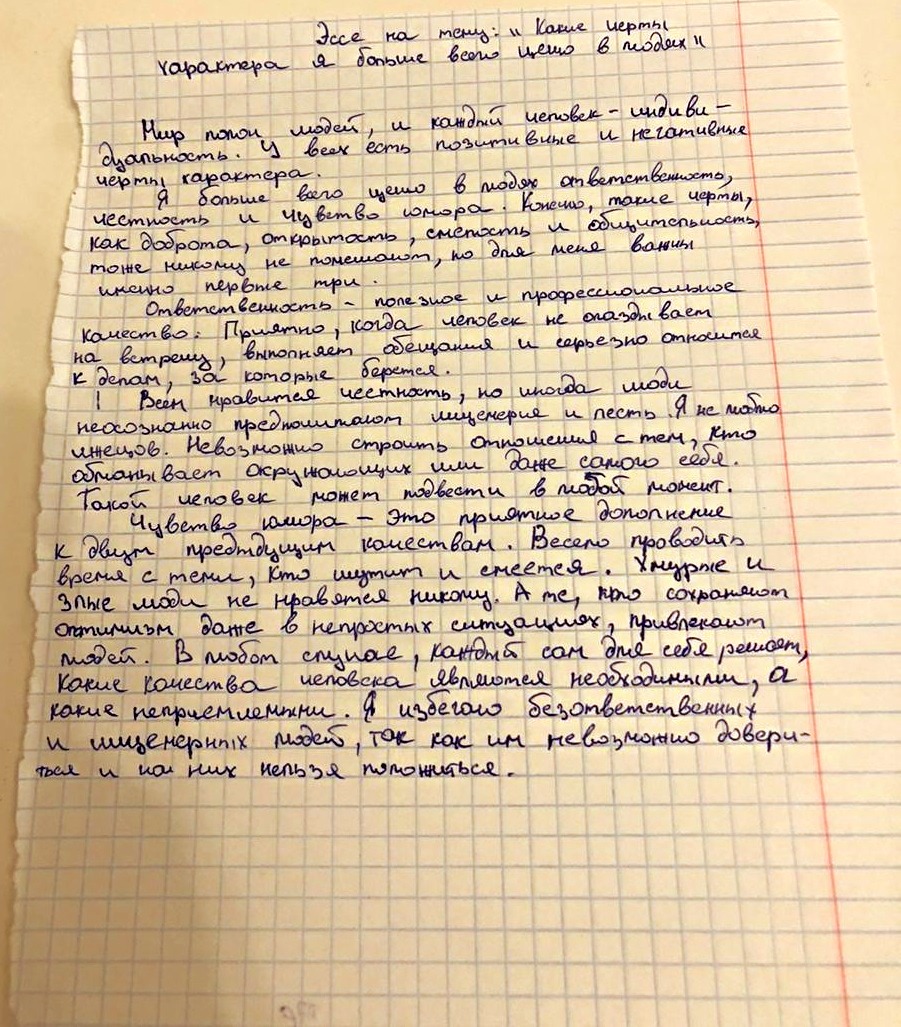 Эссе на тему: "Какие черты
характера я больше всего ценю в людях"
Мир полон людей, и каждый человек - индиви-
дуальность. У всех есть позитивные и негативные
черты характера.
Я больше всего ценю в людях ответственность,
честность и чувство юмора. Конечно, такие черты,
как доброта, открытость, смелость и общительность,
тоже никому не помешают, но для меня важны
именно первые три.
Ответственность - полезное и профессиональное
качество. Приятно, когда человек не опаздывает
на встречу, выполняет обещания и серьезно относится
к делам, за которые берется.
Всем нравится честность, но иногда люди
неосознанно предпочитают лицемерие и лесть. Я не люблю
лжецов. Невозможно строить отношения с тем, кто
обманывает окружающих или даже самого себя.
Такой человек может подвести в любой момент.
Чувство юмора - это приятное дополнение
к двум предыдущим качествам. Весело проводить
время с теми, кто шутит и смеется. Хмурые и
злые люди не нравятся никому. А те, кто сохраняют
оптимизм даже в непростых ситуациях, привлекают
людей. В любом случае, каждый сам для себя решает,
какие качества человека являются необходимыми, а
какие неприемлемыми. Я избегаю безответственных
и лицемерных людей, так как им невозможно довери-
ться и на них нельзя положиться.